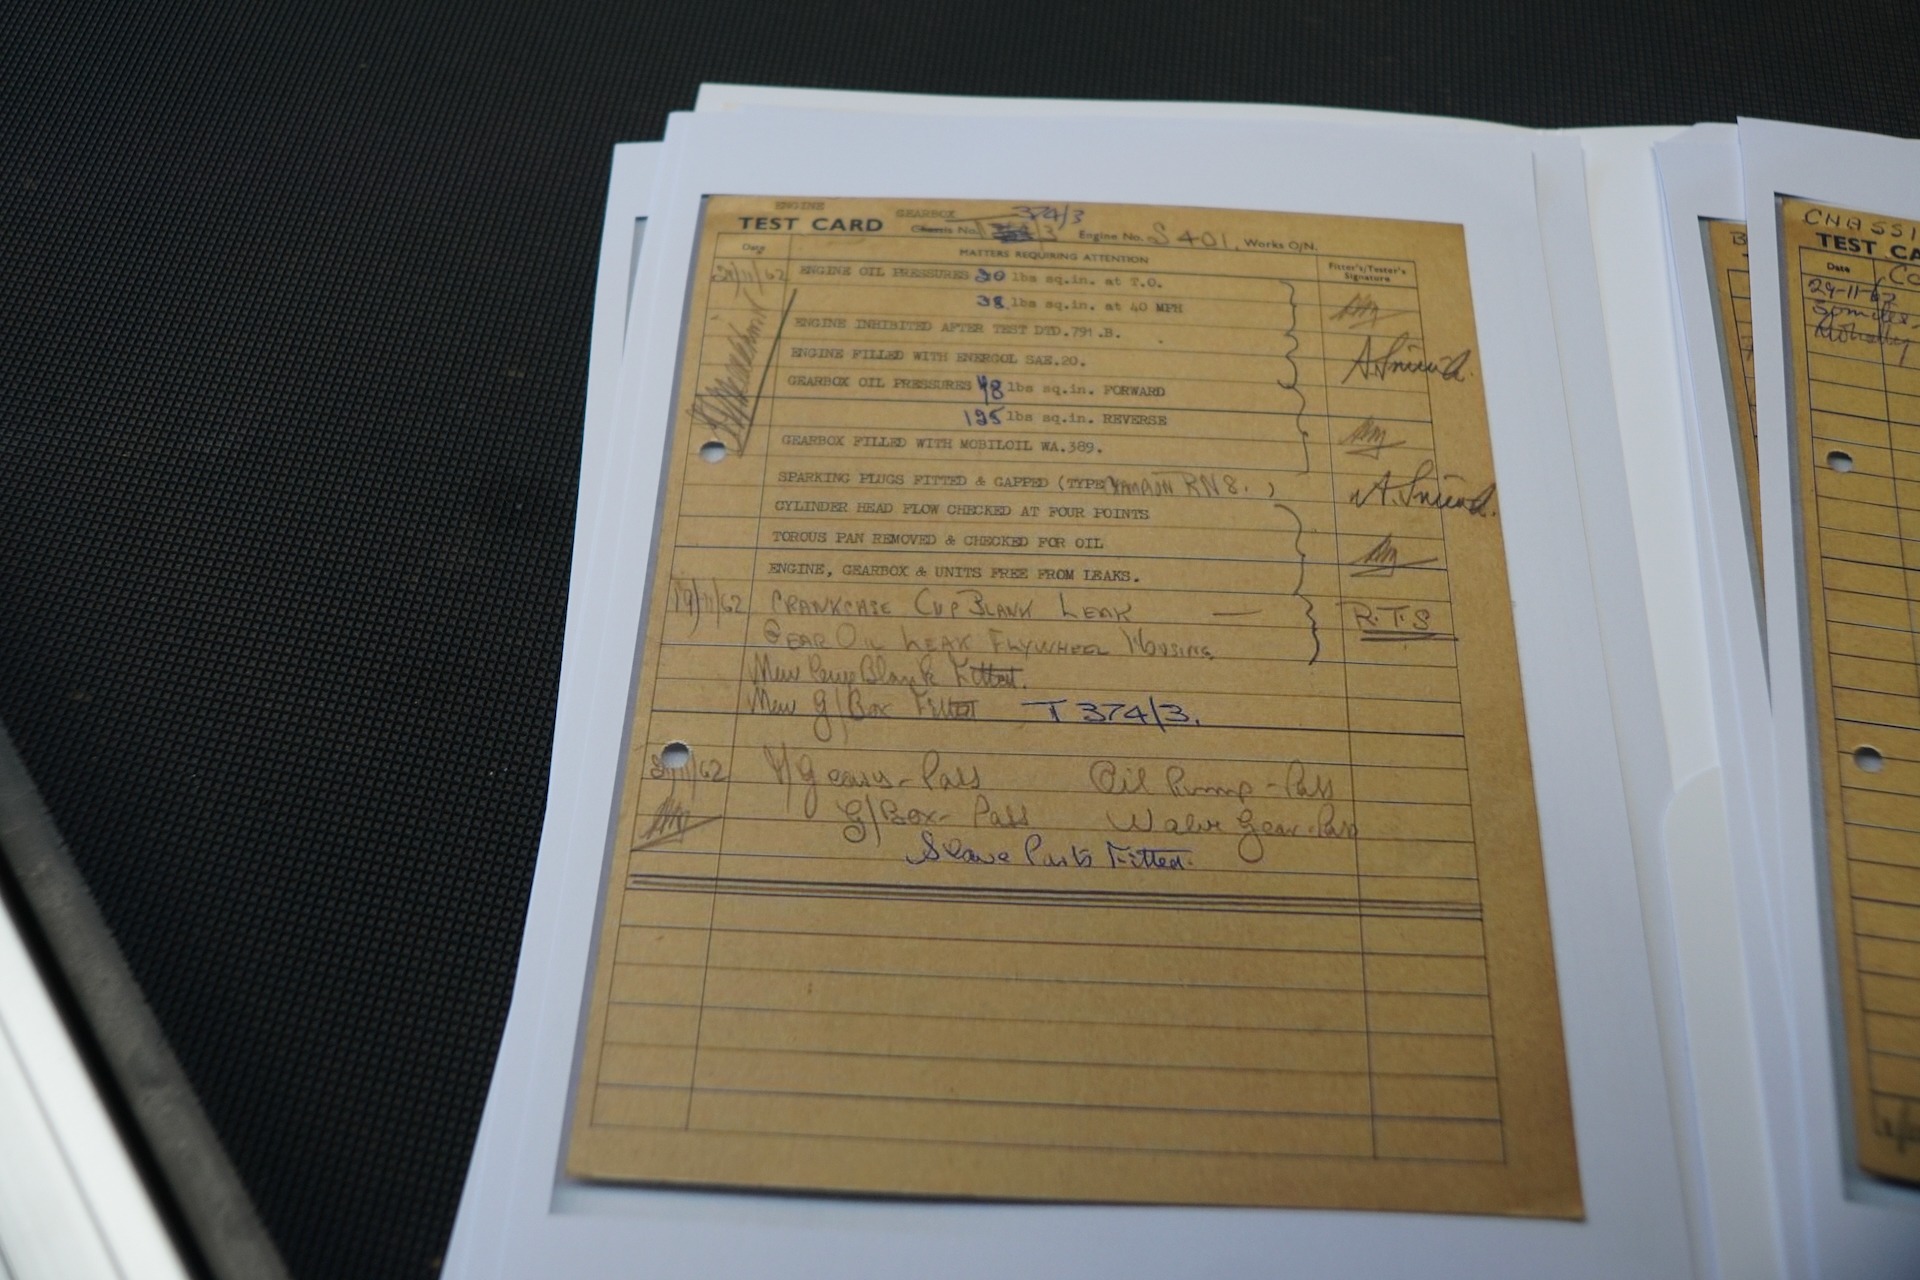 ENGINE
TEST CARD GEARBOX 374/3
Chassis No. /3 Engine No. S401. Works O/N.
Date MATTERS REQUIRING ATTENTION Fitter's/Tester's Signature
/11/62 ENGINE OIL PRESSURES 30 lbs sq.in. at T.O.
38 lbs sq.in. at 40 MPH
ENGINE INHIBITED AFTER TEST DTD.791.B.
ENGINE FILLED WITH ENERGOL SAE.20.
GEARBOX OIL PRESSURES 48 lbs sq.in. FORWARD
195 lbs sq.in. REVERSE
GEARBOX FILLED WITH MOBILOIL WA.389.
SPARKING PLUGS FITTED & GAPPED (TYPE RN8. )
CYLINDER HEAD FLOW CHECKED AT FOUR POINTS
TOROUS PAN REMOVED & CHECKED FOR OIL
ENGINE, GEARBOX & UNITS FREE FROM LEAKS.
19/11/62 CRANKCASE CUP BLANK LEAK — R.T.S
GEAR OIL LEAK FLYWHEEL HOUSING
New Blank Fitted.
New G/Box Fitted T374/3.
/11/62 T/Gears - Pass Oil Pump - Pass
G/Box - Pass Valve Gear - Pass
Slave Parts Fitted.
CHASSI
TEST CA
Date
29-11-62